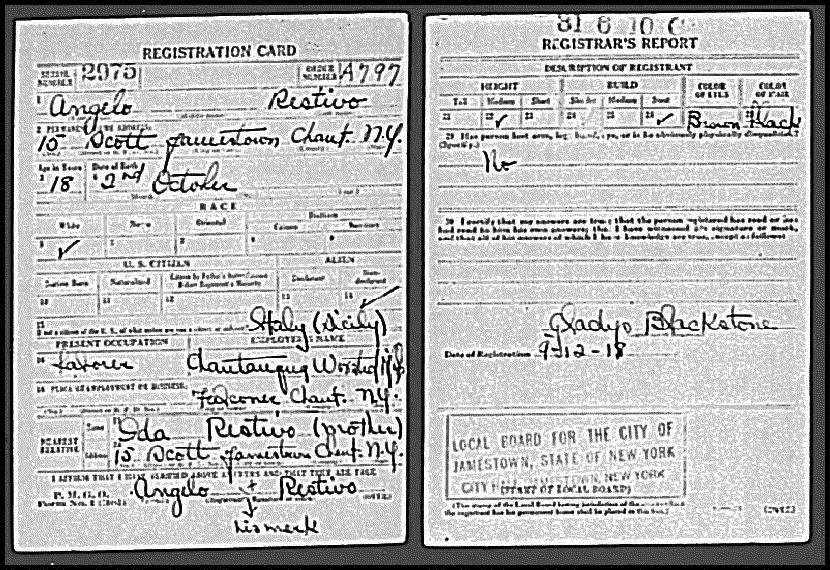 REGISTRATION CARD
SERIAL NUMBER 2975 ORDER NUMBER A797
1 Angelo Restivo
2 PERMANENT HOME ADDRESS
15 Scott Jamestown Chaut. N.Y.
Age in Years Date of Birth
3 18 4 2nd October
RACE
White Negro Oriental Indian
Citizen Noncitizen
5 ✓ 6 7 8 9
U. S. CITIZEN ALIEN
Native Born Naturalized Citizen by Father's Naturalization Before Registrant's Majority Declarant Non-declarant
10 11 12 13 14 ✓
15 If not a citizen of the U. S., of what nation are you a citizen or subject? Italy (Sicily)
PRESENT OCCUPATION EMPLOYER'S NAME
16 Laborer Chautauqua Worsted Mill
18 PLACE OF EMPLOYMENT OR BUSINESS
Falconer Chaut. N.Y.
NEAREST RELATIVE Name Ida Restivo (mother)
Address 15 Scott Jamestown Chaut. N.Y.
I AFFIRM THAT I HAVE VERIFIED ABOVE ANSWERS AND THAT THEY ARE TRUE
P. M. G. O. Form No. 1 (Red) Angelo + Restivo
his mark
31 6 10 C
REGISTRAR'S REPORT
DESCRIPTION OF REGISTRANT
HEIGHT BUILD COLOR OF EYES COLOR OF HAIR
Tall Medium Short Slender Medium Stout
21 22 ✓ 23 24 25 26 ✓ 27 Brown 28 Black
29 Has person lost arm, leg, hand, eye, or is he obviously physically disqualified? (Specify.)
No
30 I certify that my answers are true; that the person registered has read or has had read to him his own answers; that I have witnessed his signature or mark, and that all of his answers of which I have knowledge are true, except as follows:
Gladys Blackstone
Date of Registration 9-12-18
LOCAL BOARD FOR THE CITY OF
JAMESTOWN, STATE OF NEW YORK
CITY HALL, JAMESTOWN, NEW YORK
(STAMP OF LOCAL BOARD)
(The stamp of the Local Board having jurisdiction of the area in which the registrant has his permanent home shall be placed in this box.)